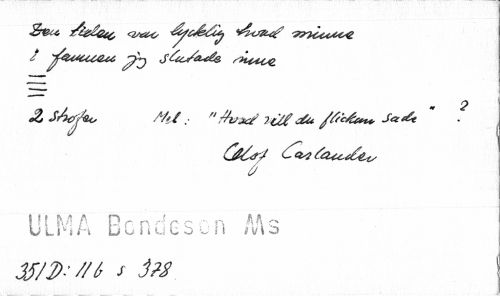 Den tiden var lycklig hvad minne
i famnen jag slutade inne
2 strofer Mel: "Hvad vill du flickan sade" ?
Olof Carlander
ULMA Bondeson Ms
351 D: 11 b s 378